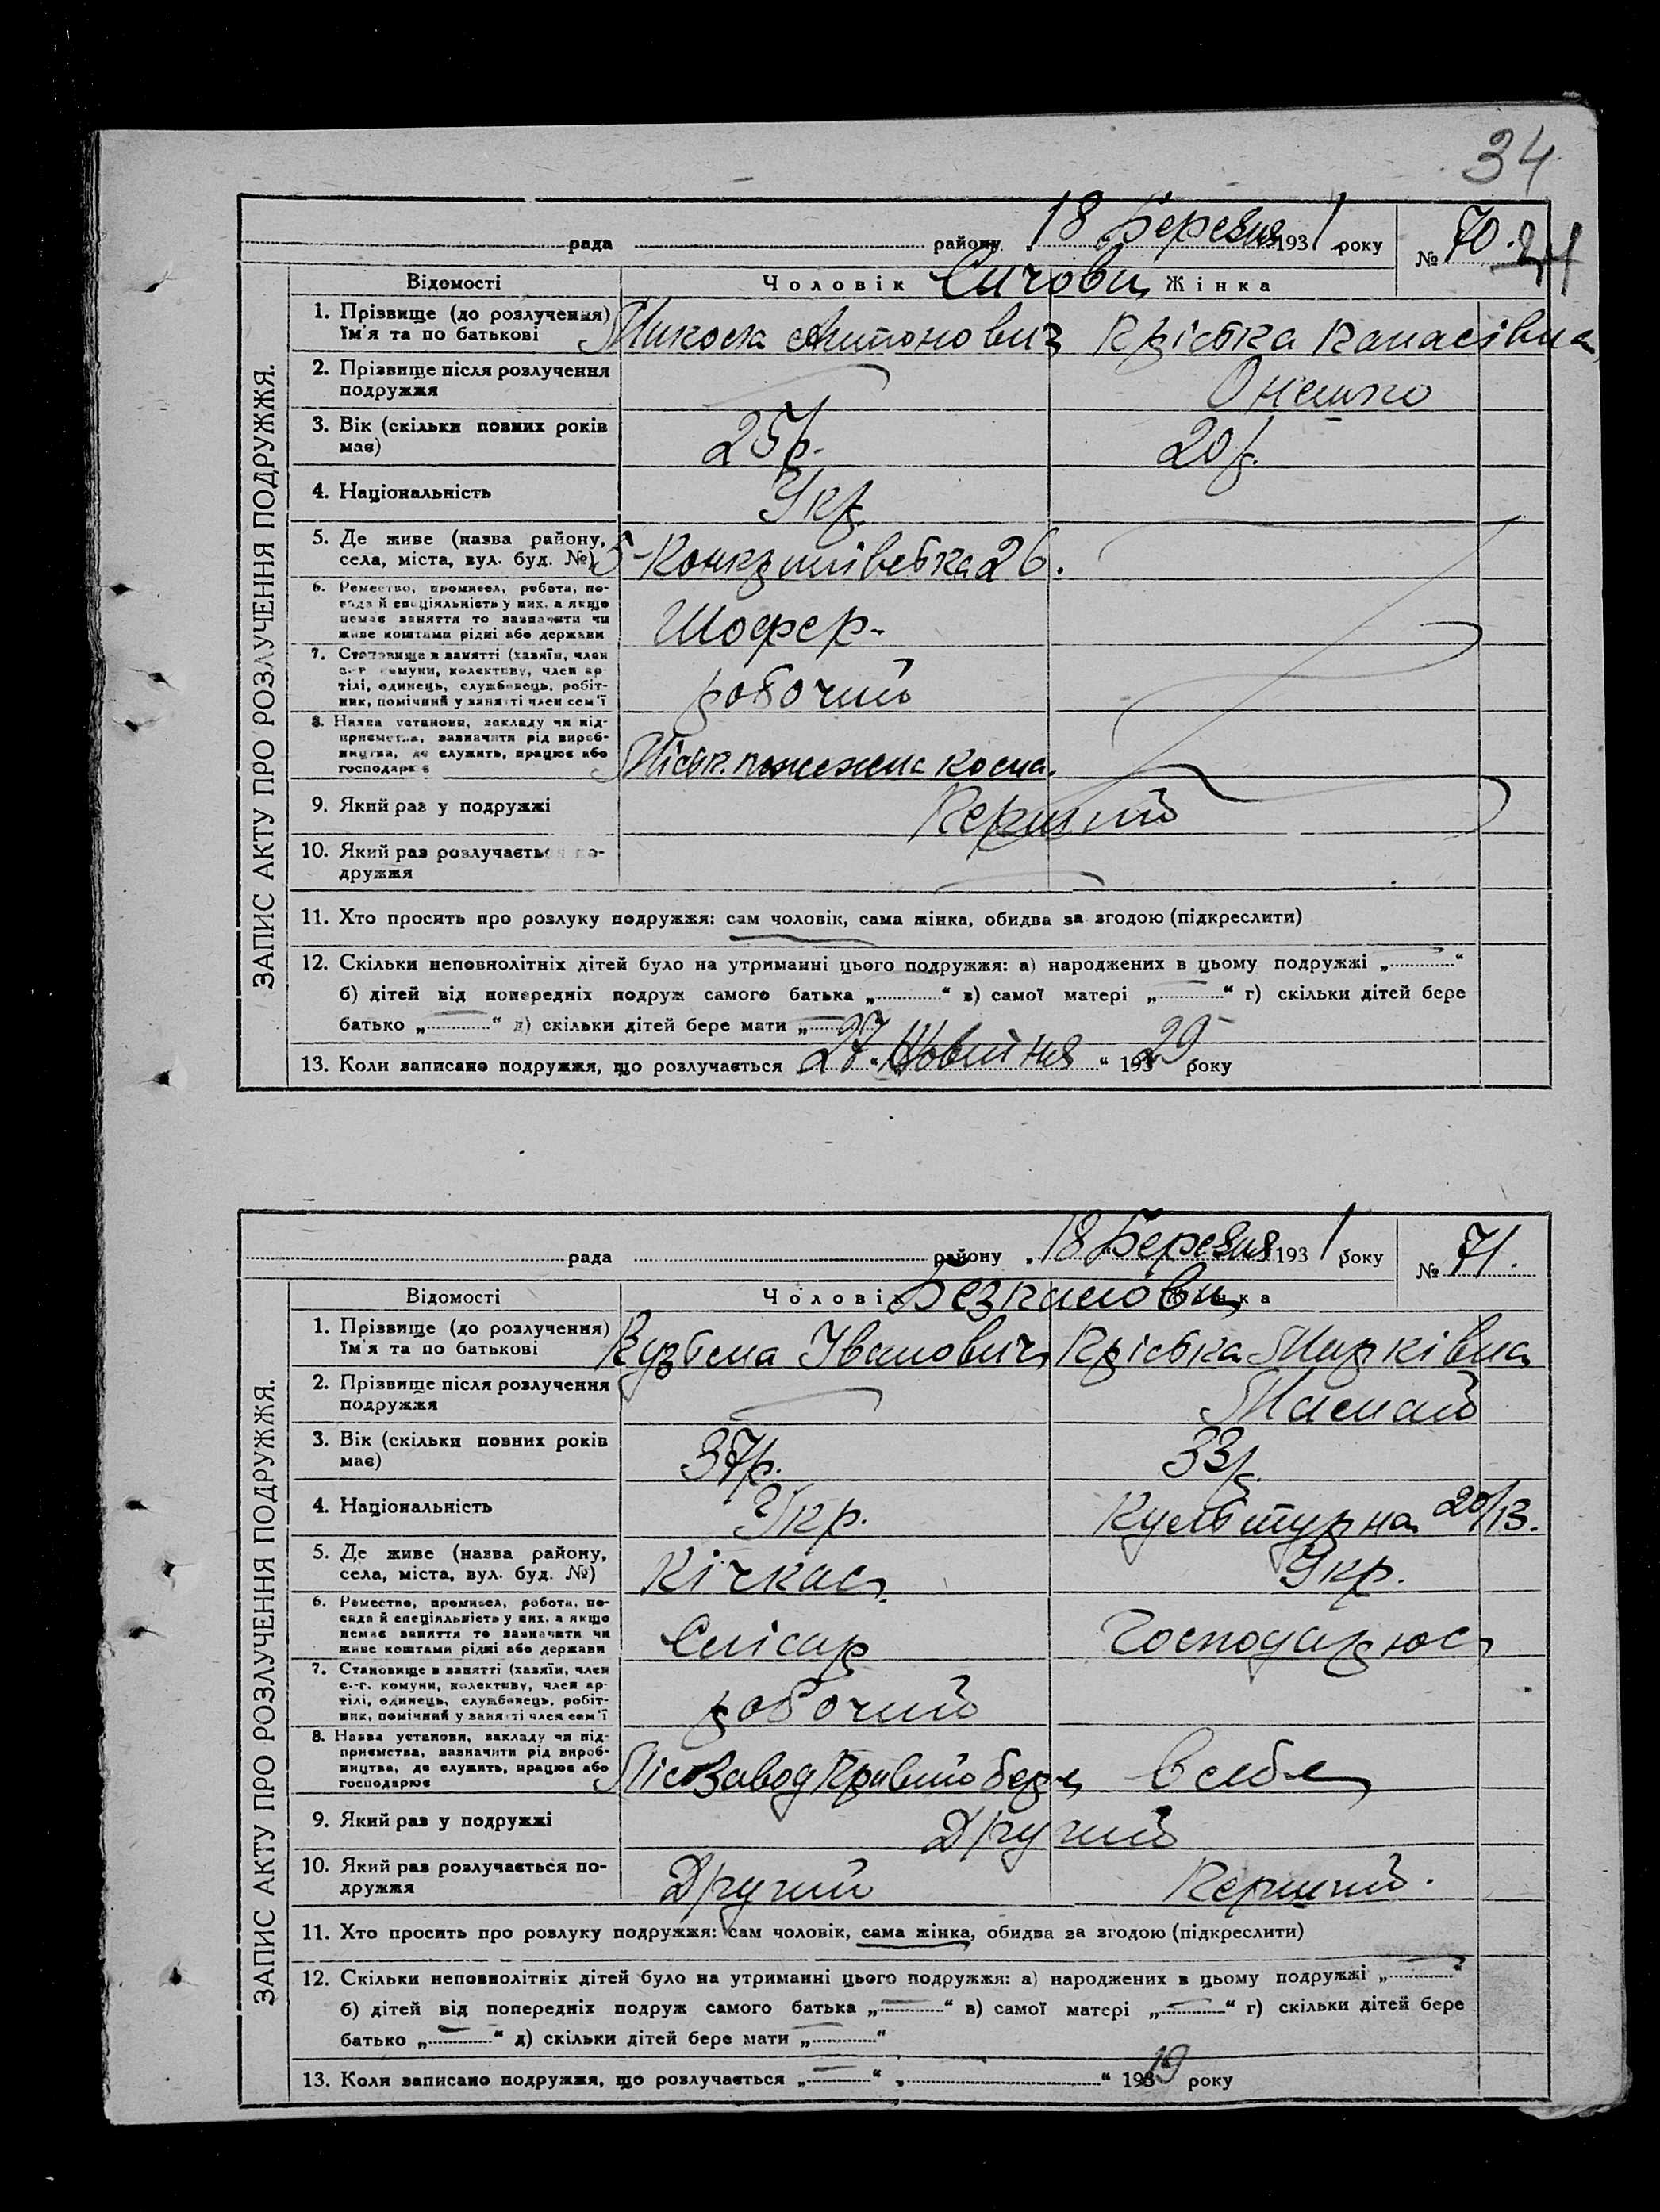 34
рада району 18 Березня 1931 року № 70. 24
Відомості Чоловік Сичови Жінка
ЗАПИС АКТУ ПРО РОЗЛУЧЕННЯ ПОДРУЖЖЯ.
1. Прізвище (до розлучення) Ім'я та по батькові Микола Антонович Крістка Панасівна
2. Прізвище після розлучення подружжя Онешко
3. Вік (скільки повних років має) 25 р. 20 р.
4. Національність Укр.
5. Де живе (назва району, села, міста, вул. буд. №) 26.
6. Ремество, промисел, робота, посада й спеціяльність у них, а якщо немає заняття то зазначити чи живе коштами рідні або держави Шофер-
7. Становище в занятті (хазяїн, член с.-г. комуни, колективу, член артілі, одинець, службовець, робітник, помічний у занятті член сем'ї робочий
8. Назва установи, закладу чи підприємства, зазначити рід виробництва, де служить, працює або господарює Міськ. пожежна
9. Який раз у подружжі Перший
10. Який раз розлучається подружжя
11. Хто просить про розлуку подружжя: сам чоловік, сама жінка, обидва за згодою (підкреслити)
12. Скільки неповнолітніх дітей було на утриманні цього подружжя: а) народжених в цьому подружжі „ “
б) дітей від попередніх подруж самого батька „ “ в) самої матері „ “ г) скільки дітей бере
батько „ “ д) скільки дітей бере мати „
13. Коли записано подружжя, що розлучається 27 “ Жовтня “ 193 29 року
рада району „18 Березня 1931 року № 71.
Відомості Чоловік Безпалови Жінка
ЗАПИС АКТУ ПРО РОЗЛУЧЕННЯ ПОДРУЖЖЯ.
1. Прізвище (до розлучення) Ім'я та по батькові Кузьма Іванович Крістка Марківна
2. Прізвище після розлучення подружжя
3. Вік (скільки повних років має) 37 р. 33 р.
4. Національність Укр. Культурна 20/13.
5. Де живе (назва району, села, міста, вул. буд. №) Кічкас Укр.
6. Ремество, промисел, робота, посада й спеціяльність у них, а якщо немає заняття то зазначити чи живе коштами рідні або держави Слісар Господарює
7. Становище в занятті (хазяїн, член с.-г. комуни, колективу, член артілі, одинець, службовець, робітник, помічний у занятті член сем'ї робочий
8. Назва установи, закладу чи підприємства, зазначити рід виробництва, де служить, працює або господарює Лісозавод Правий берег в себе
9. Який раз у подружжі Другий
10. Який раз розлучається подружжя Другий Перший.
11. Хто просить про розлуку подружжя: сам чоловік, сама жінка, обидва за згодою (підкреслити)
12. Скільки неповнолітніх дітей було на утриманні цього подружжя: а) народжених в цьому подружжі „ “
б) дітей від попередніх подруж самого батька „ “ в) самої матері „ “ г) скільки дітей бере
батько „ “ д) скільки дітей бере мати „ “
13. Коли записано подружжя, що розлучається „ “ „ “ 193 19 року